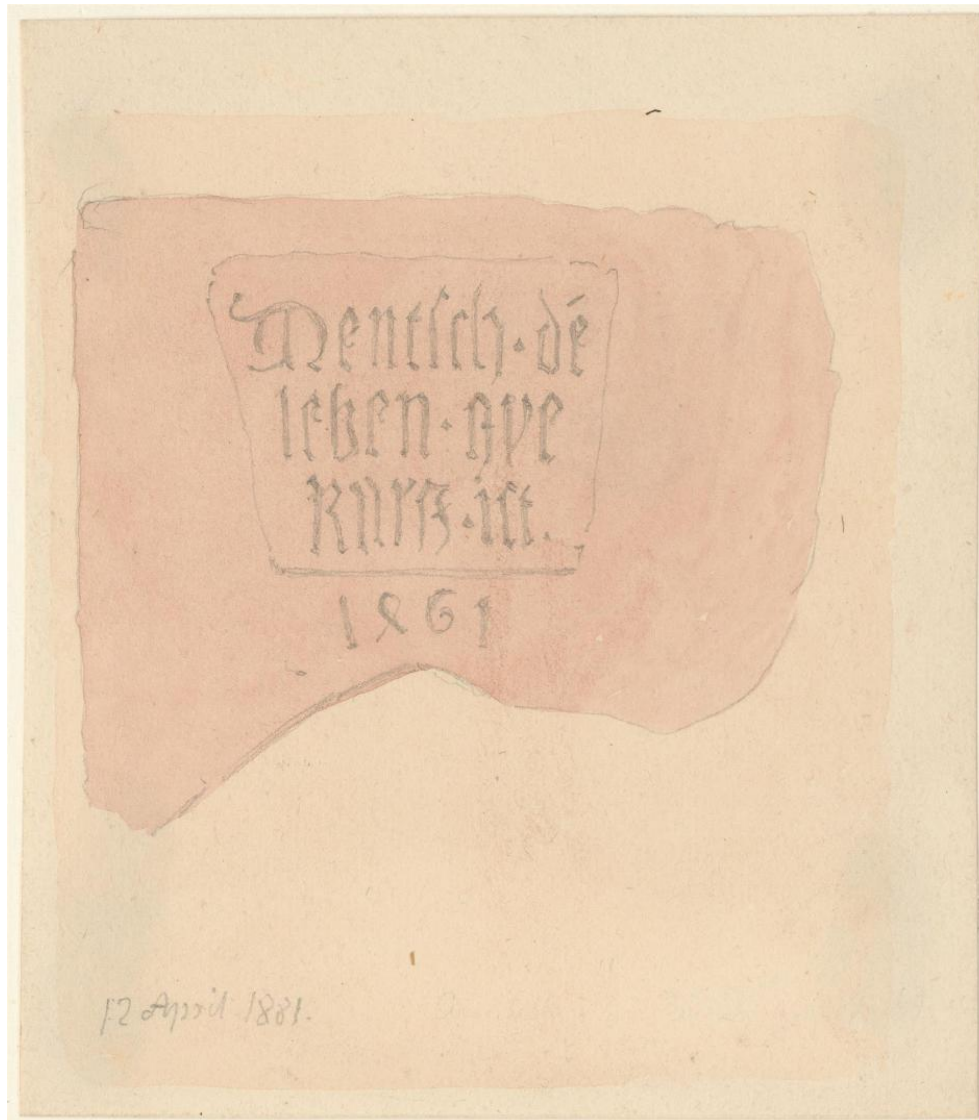 Mentsch · dē
leben ·
kurtz · ist.
1461
12 April 1881.